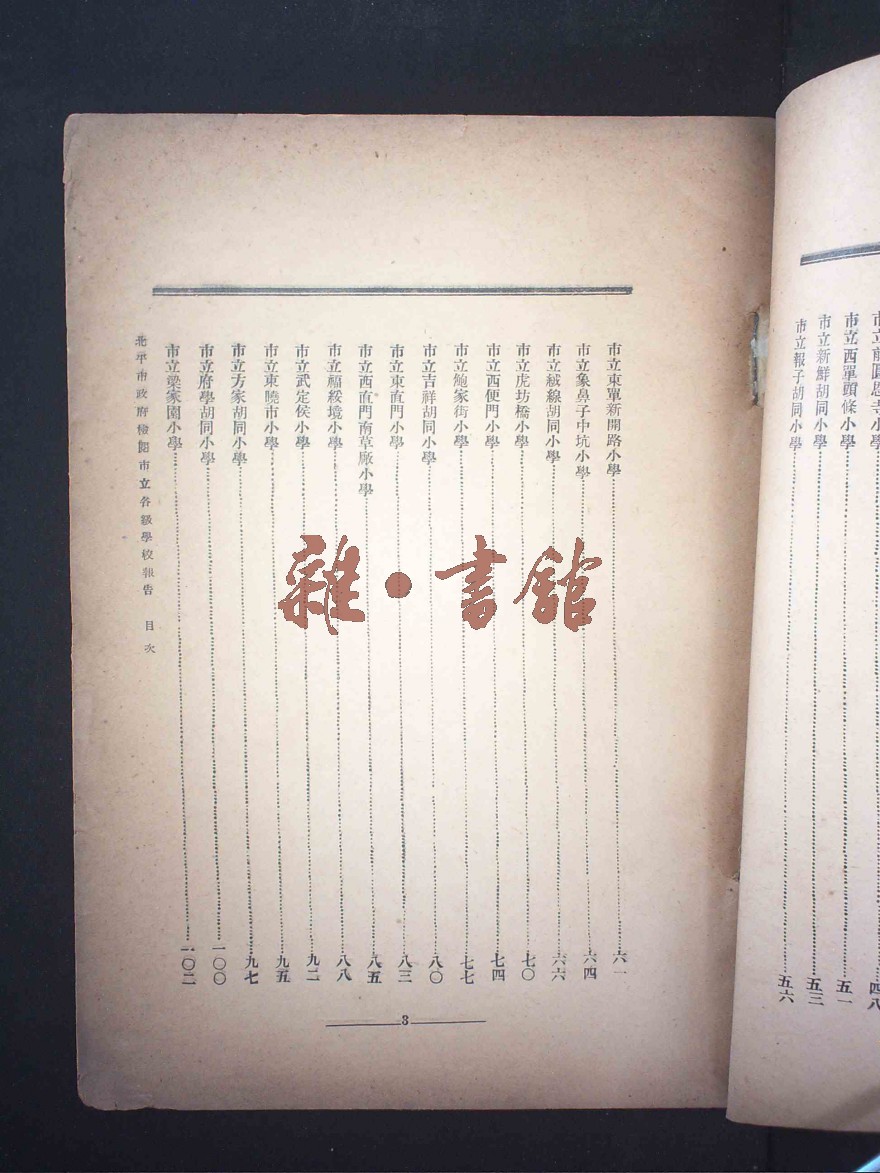 市立前圓恩寺小學 四八
市立西單頭條小學 五一
市立新鮮胡同小學 五三
市立報子胡同小學 五六
市立東單新開路小學 六一
市立象鼻子中坑小學 六四
市立絨線胡同小學 六六
市立虎坊橋小學 七〇
市立西便門小學 七四
市立鮑家街小學 七七
市立吉祥胡同小學 八〇
市立東直門小學 八三
市立西直門南草厰小學 八五
市立福綏境小學 八八
市立武定侯小學 九二
市立東曉市小學 九五
市立方家胡同小學 九七
市立府學胡同小學 一〇〇
市立梁家園小學 一〇二
北平市政府檢閱市立各級學校報告 目次
3
雜·書館